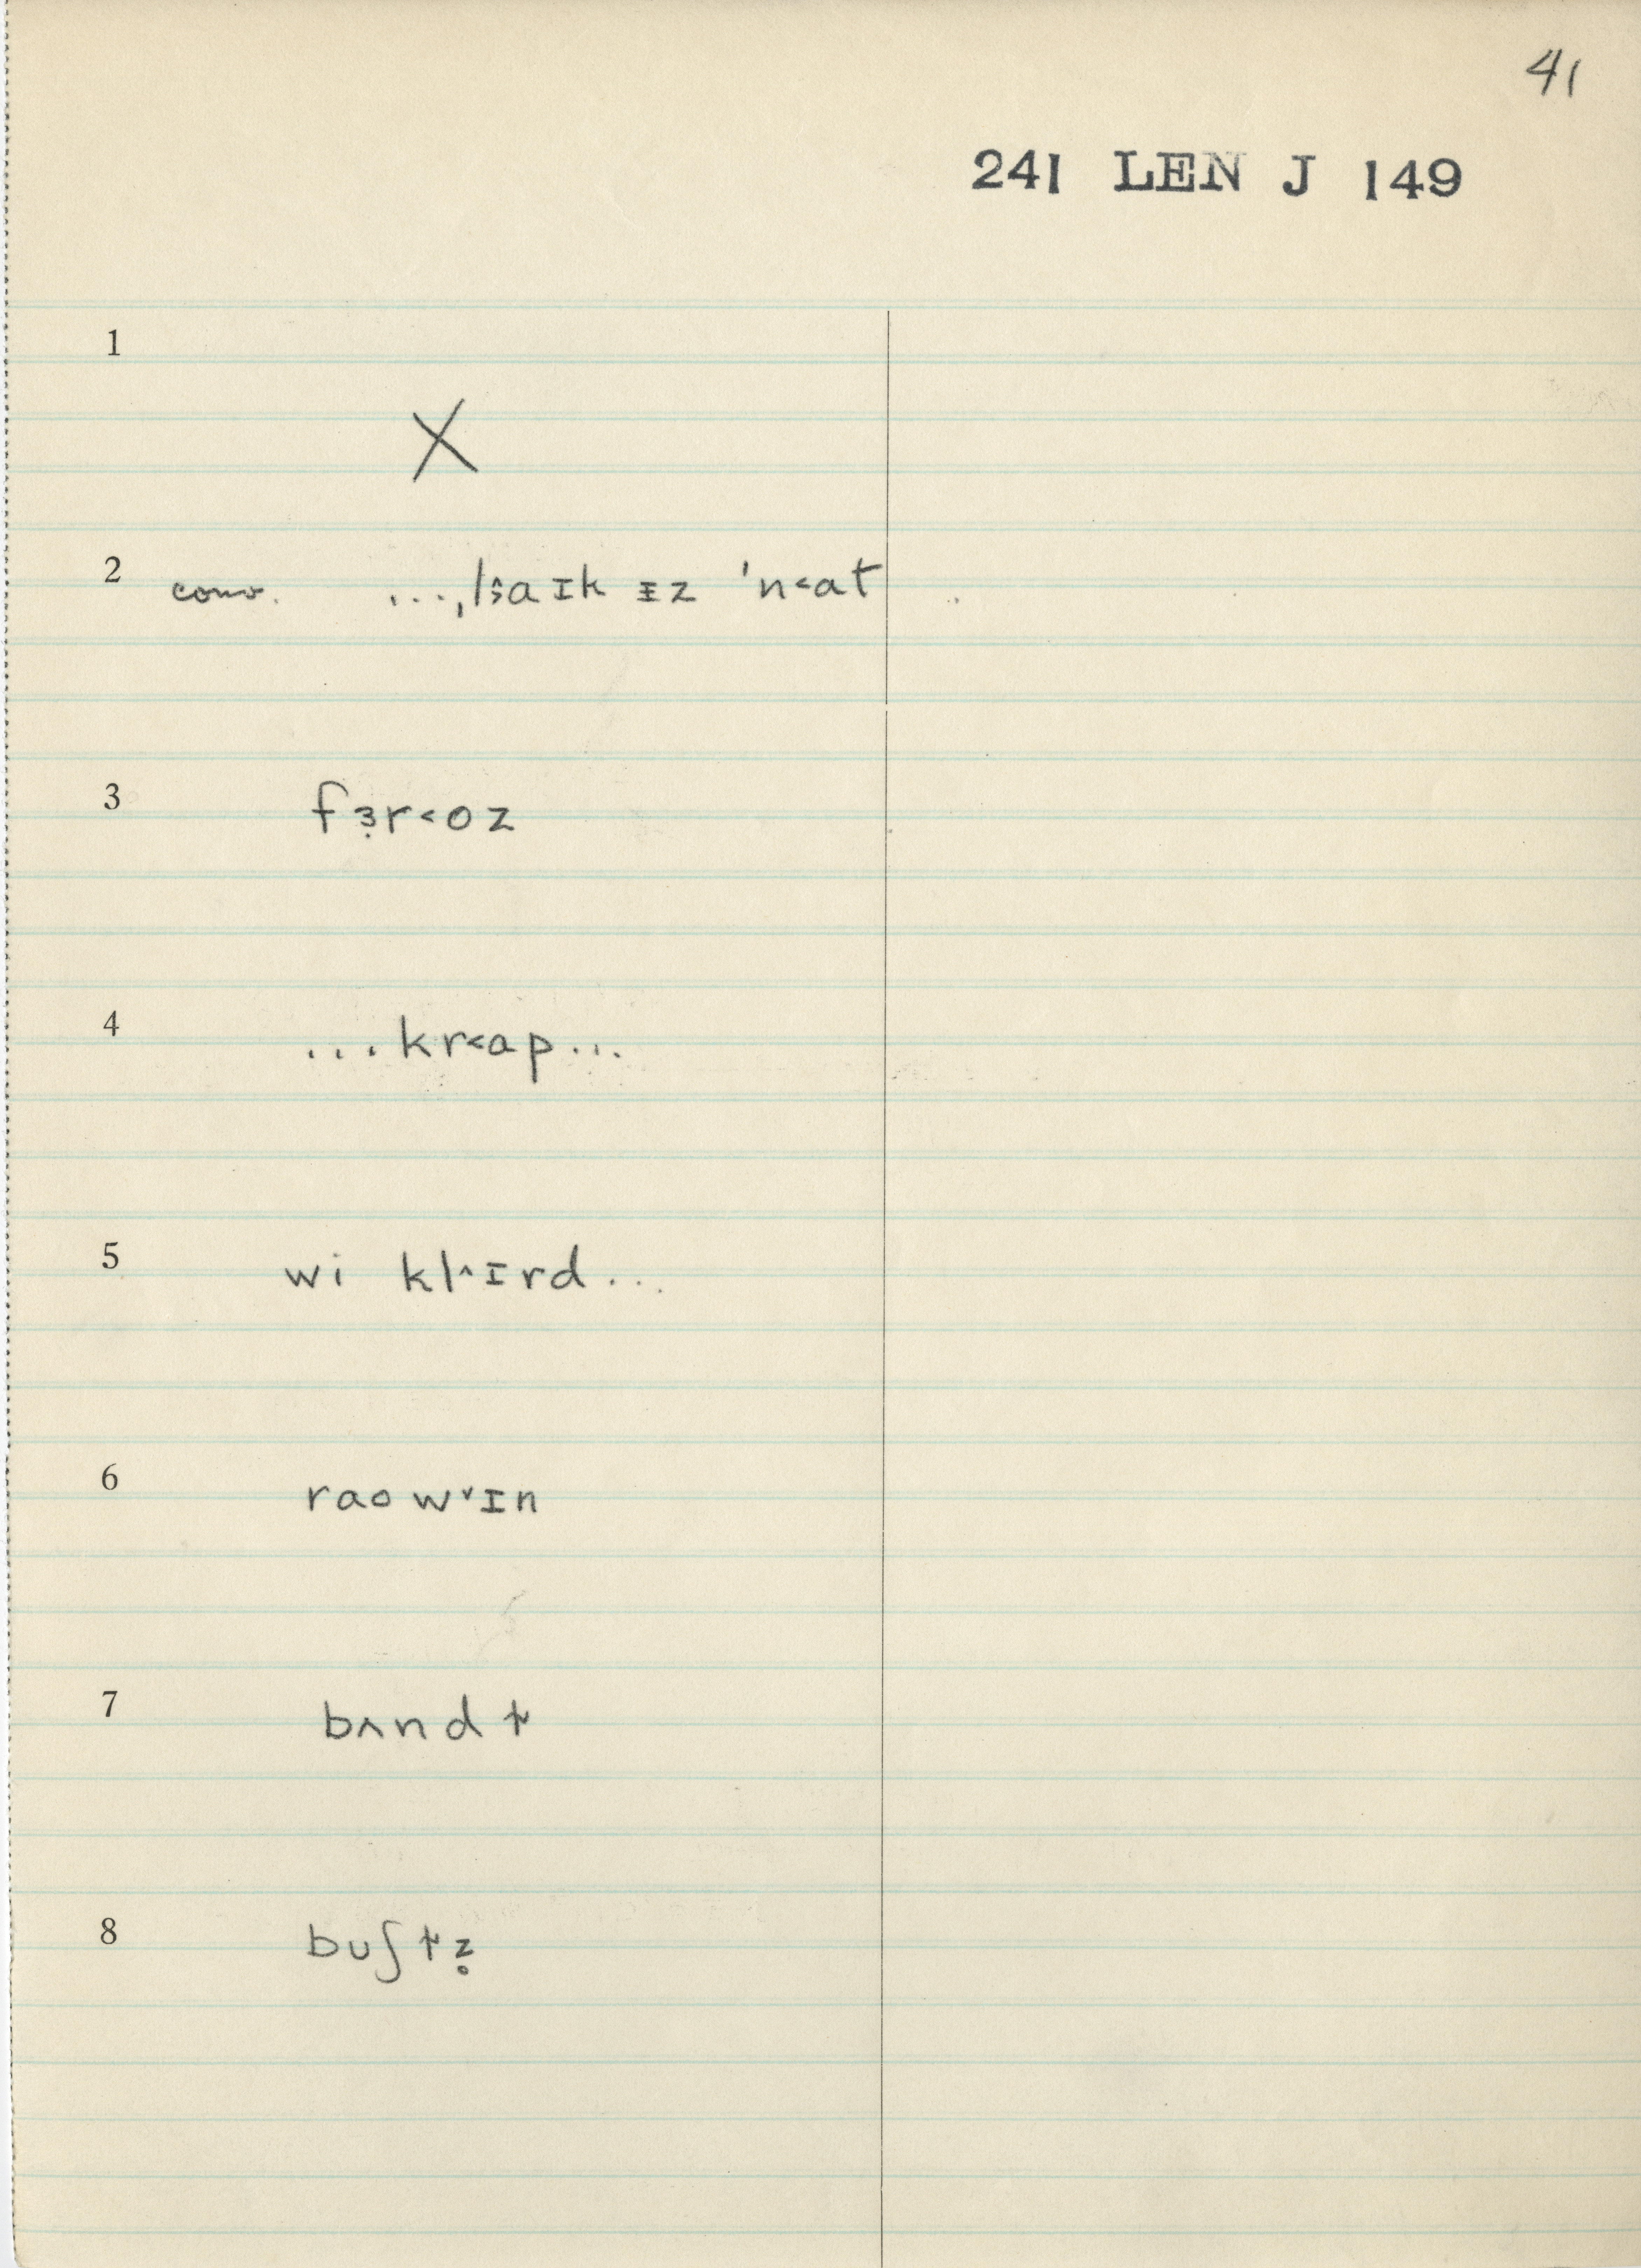 41
241 LEN J 149
1
X
2 conv. ...ˌl˂̣aɪk ɪ̵z ˈn˂at
3 fɜ̣r˂oz
4 ...kr˂ap...
5 wi kl˄ɪrd...
6 raow˅ɪn
7 bʌndɫ
8 buʃɫz̥